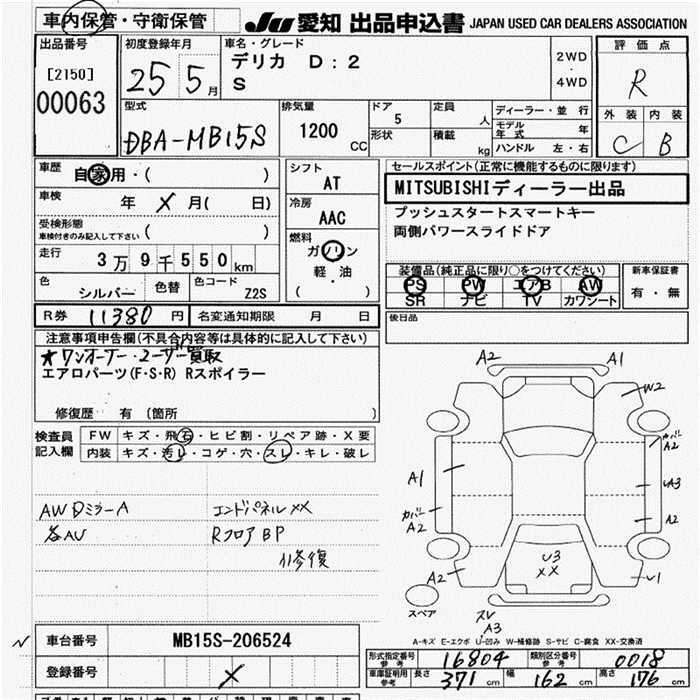 車内保管・守衛保管 JU 愛知 出品申込書 JAPAN USED CAR DEALERS ASSOCIATION
出品番号 [2150] 00063
初度登録年月 25 5月
車名・グレード デリカ D:2
S
2WD・4WD
評価点 R
外装 C 内装 B
型式 DBA-MB15S
排気量 1200 CC
ドア 5
形状
定員 人
積載 kg
ディーラー・並行
モデル年式 年
ハンドル 左・右
車歴 自家用・( )
車検 年 X 月( 日)
受検形態 ( )
車検付きのみ記入して下さい
走行 3万9千550km
色 シルバー 色替 色コード Z2S
シフト AT
冷房 AAC
燃料 ガソリン
軽・油
( )
セールスポイント(正常に機能するものに限ります)
MITSUBISHIディーラー出品
プッシュスタートスマートキー
両側パワースライドドア
装備品(純正品に限り○をつけてください)
PS PW エアB AW
SR ナビ TV カワシート
新車保証書
有・無
R券 11380円 名変通知期限 月 日
後日品
注意事項申告欄(不具合内容等は具体的に記入して下さい)
★ワンオーナー・ユーザー買取
エアロパーツ(F・S・R) Rスポイラー
修復歴 有 (箇所 )
検査員記入欄
FW キズ・飛石・ヒビ割・リペア跡・X要
内装 キズ・汚レ・コゲ・穴・スレ・キレ・破レ
AW DミラーA エンドパネルXX
各AU RフロアBP
修復
A2 A1
W2
カバー A2
A1
A3
カバー A2
A2
A2
U3
XX
U1
スペア
A3
A-キズ E-エクボ U-凹み W-補修跡 S-サビ C-腐食 XX-交換済
車台番号 MB15S-206524
登録番号 X
形式指定番号 参考 16804 類別区分番号 参考 0018
車庫証明用 参考 長さ 371cm 幅 162cm 高さ 176cm